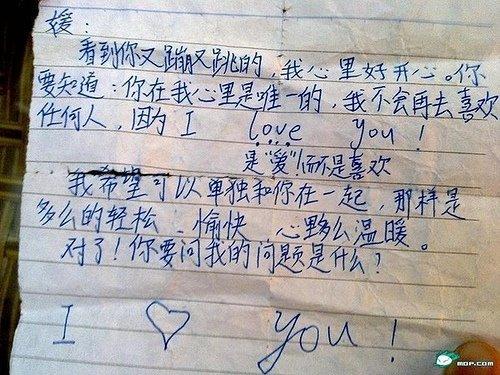 媛：
看到你又蹦又跳的，我心里好开心。你
要知道：你在我心里是唯一的，我不会再去喜欢
任何人，因为I love you！
是“爱”而不是喜欢
我希望可以单独和你在一起，那样是
多么的轻松、愉快 心多么温暖。
对了！你要问我的问题是什么？
I ♡ you！
MOP.COM